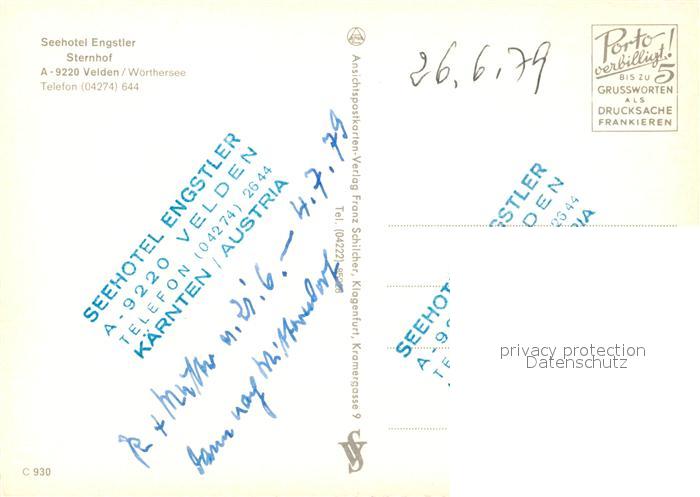 Seehotel Engstler
Sternhof
A - 9220 Velden / Wörthersee
Telefon (04274) 644
SEEHOTEL ENGSTLER
A - 9220 VELDEN
TELEFON (04274) 2644
KÄRNTEN / AUSTRIA
+ Mutter 6. — 4.7.79
dann nach
C 930
Ansichtspostkarten-Verlag Franz Schilcher, Klagenfurt, Kramergasse 9
Tel. (04222)
26.6.79
Porto
verbilligt!
BIS ZU 5
GRUSSWORTEN
ALS
DRUCKSACHE
FRANKIEREN
GSTLER
DEN
2644
IA
SEEHOT
A - 9
TE
KÄ
privacy protection
Datenschutz